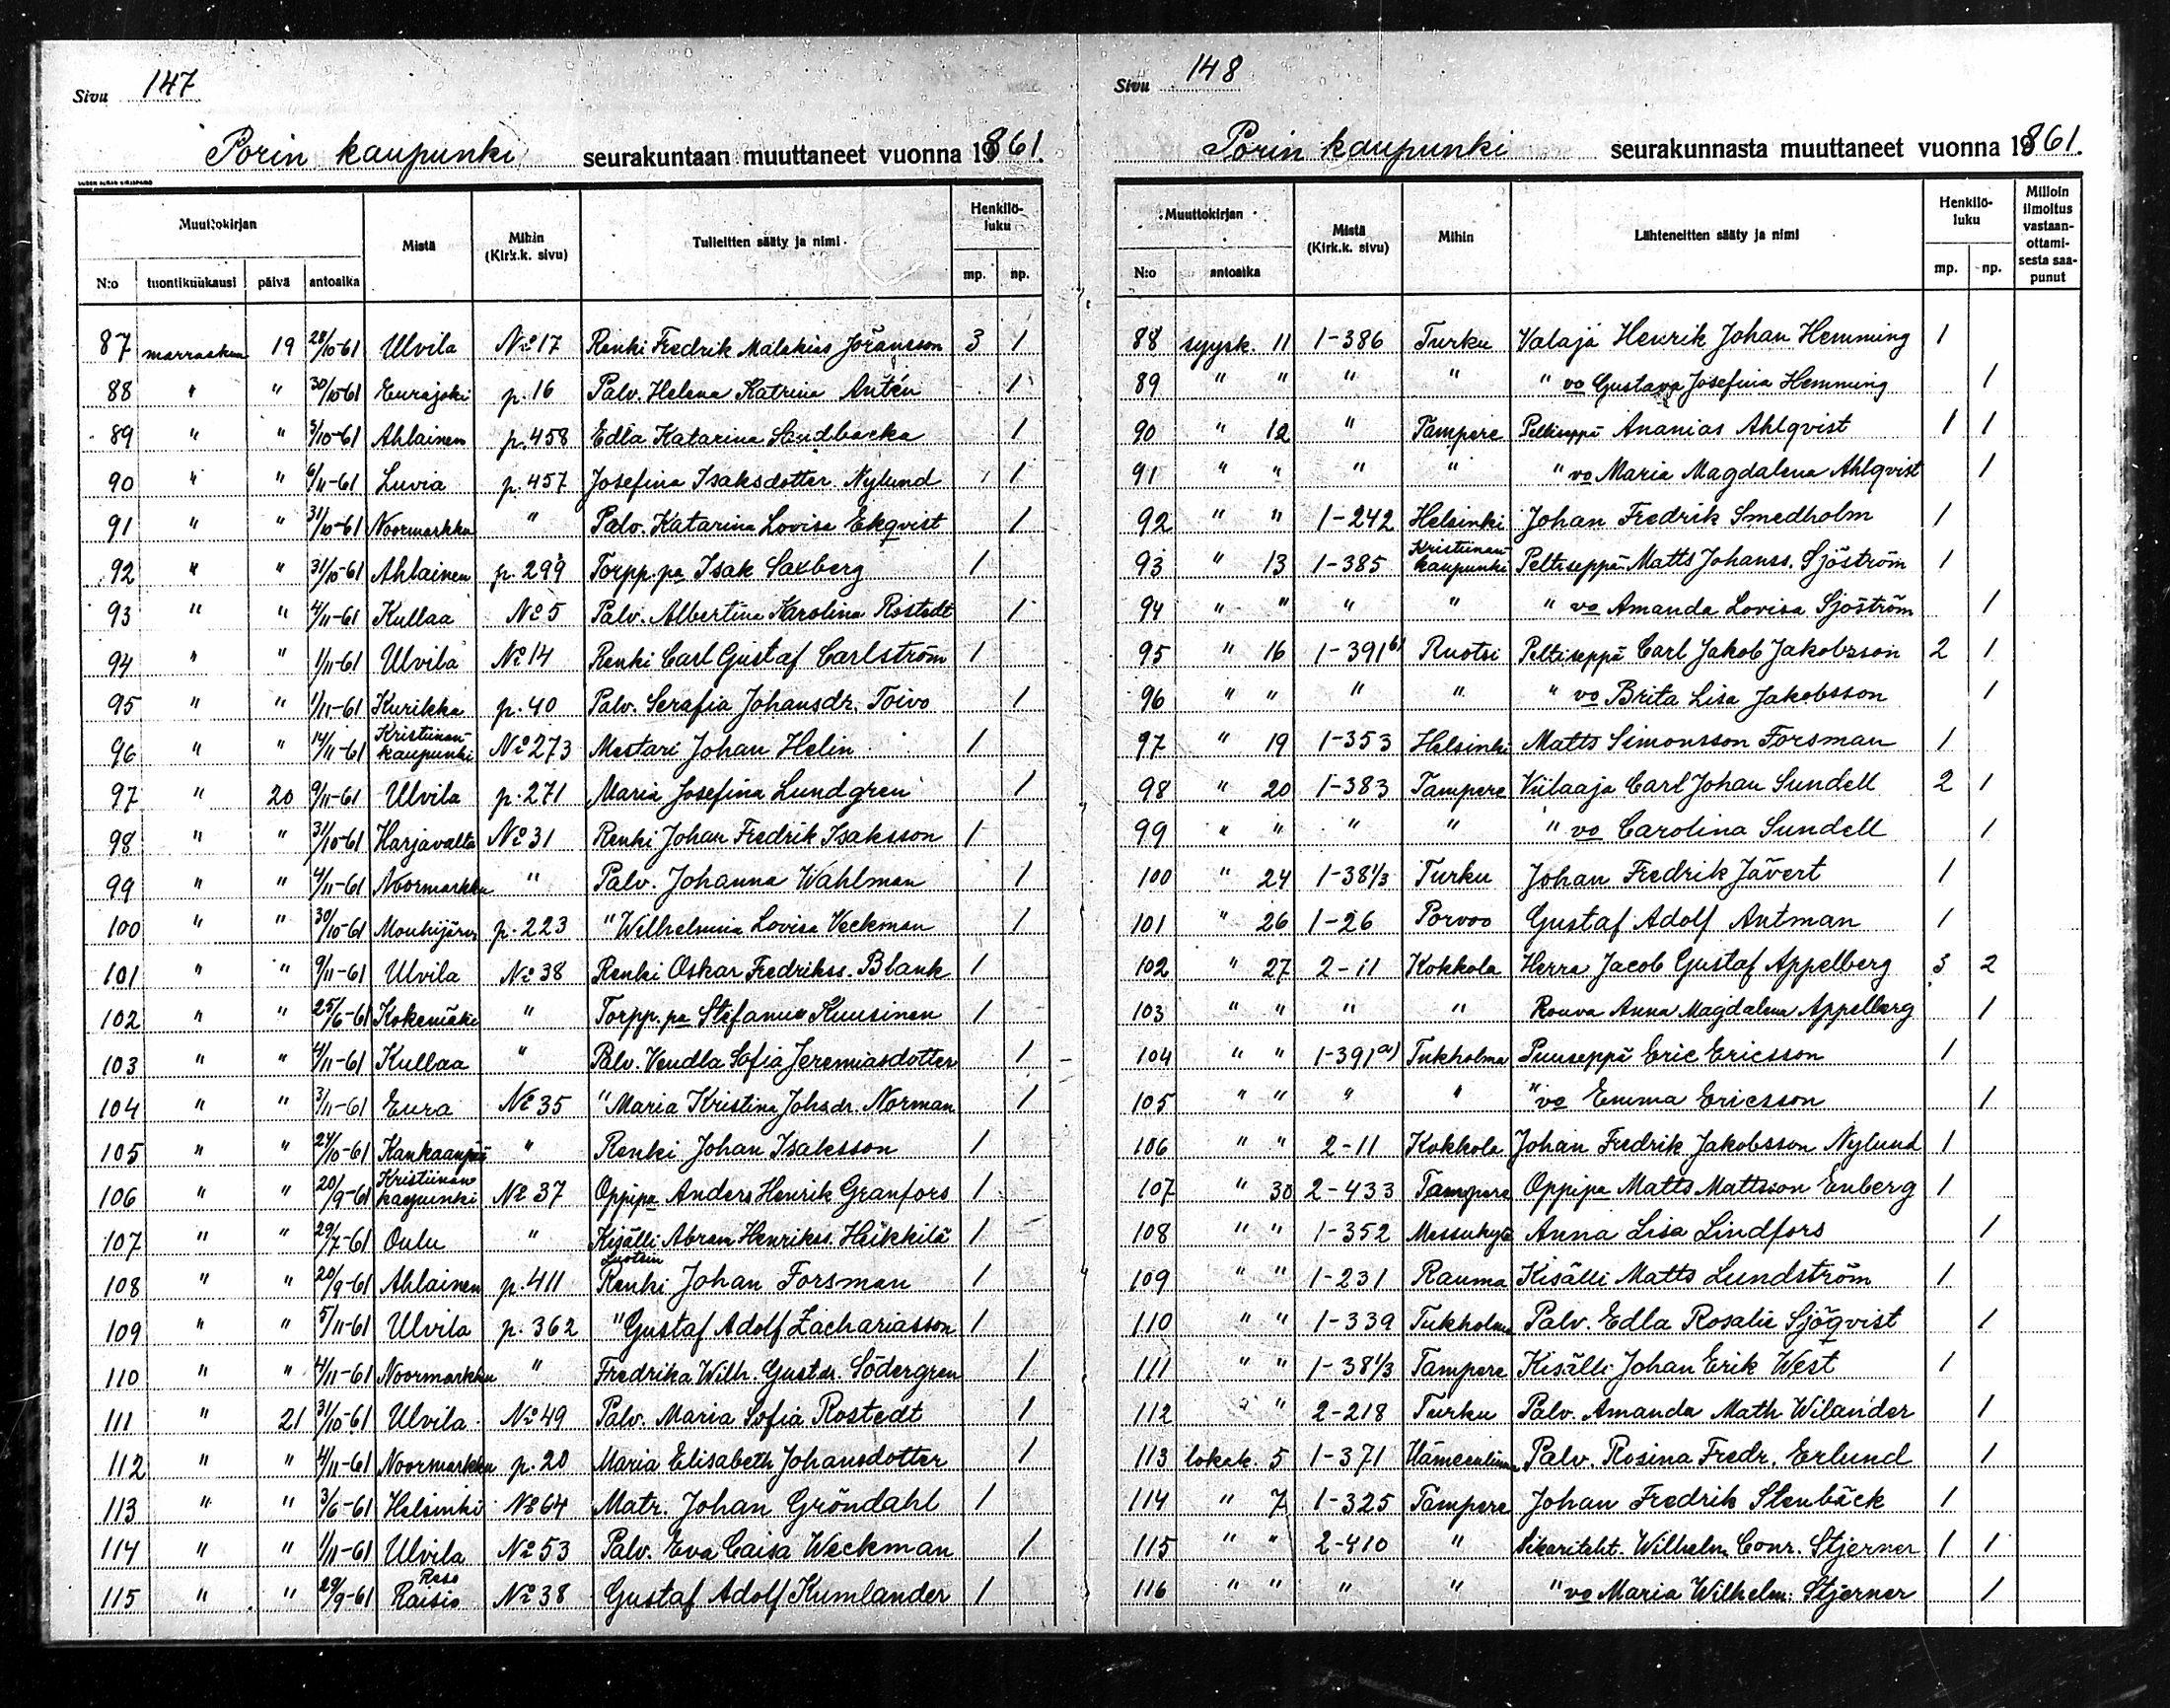 Sivu 147
Porin kaupunki seurakuntaan muuttaneet vuonna 1861.
Muuttokirjan Mistä Mihin (Kirk.k. sivu) Tulleitten sääty ja nimi Henkilö-luku
N:o tuontikuukausi päivä antoaika mp. np.
87 marraskuu 19 28/10-61 Ulvila No 17 Renki Fredrik Malakias Jöransson 3 1
88 " " 30/10-61 Eurajoki p. 16 Palv. Helena Katrina Antén 1
89 " " 3/10-61 Ahlainen p. 458 Edla Katarina Sandbacka 1
90 " " 6/11-61 Luvia p. 457 Josefina Isaksdotter Nylund 1
91 " " 31/10-61 Noormarkku " Palv. Katarina Lovisa Ekqvist 1
92 " " 31/10-61 Ahlainen p. 299 Torpp.pa Isak Saxberg 1
93 " " 4/11-61 Kullaa No 5 Palv. Albertina Karolina Rostedt 1
94 " " 1/11-61 Ulvila No 14 Renki Carl Gustaf Carlström 1
95 " " 1/11-61 Kurikka p. 40 Palv. Serafia Johansdr. Toivo 1
96 " " 14/11-61 Kristiinan-kaupunki No 273 Mestari Johan Helin 1
97 " 20 9/11-61 Ulvila p. 271 Maria Josefina Lundgren 1
98 " " 31/10-61 Harjavalta No 31 Renki Johan Fredrik Isaksson 1
99 " " 4/11-61 Noormarkku " Palv. Johanna Wahlman 1
100 " " 30/10-61 Mouhijärvi p. 223 " Wilhelmina Lovisa Veckman 1
101 " " 9/11-61 Ulvila No 38 Renki Oskar Fredrikss. Blank 1
102 " " 25/6-61 Kokemäki " Torpp.pa Stefanus Kuusinen 1
103 " " 4/11-61 Kullaa " Palv. Vendla Sofia Jeremiasdotter 1
104 " " 3/11-61 Eura No 35 " Maria Kristina Johsdr. Norman 1
105 " " 24/10-61 Kankaanpää " Renki Johan Isaksson 1
106 " " 20/9-61 Kristiinankaupunki No 37 Oppipa Anders Henrik Granfors 1
107 " " 29/7-61 Oulu " Kisälli Abram Henrikss. Heikkilä 1
Luotsin
108 " " 20/9-61 Ahlainen p. 411 Renki Johan Forsman 1
109 " " 5/11-61 Ulvila p. 362 " Gustaf Adolf Zachariasson 1
110 " " 4/11-61 Noormarkku " Fredrika Wilh. Gustdr. Södergren 1
111 " 21 31/10-61 Ulvila No 49 Palv. Maria Sofia Rostedt 1
112 " " 4/11-61 Noormarkku p. 20 Maria Elisabeth Johansdotter 1
113 " " 3/6-61 Helsinki No 64 Matr. Johan Gröndahl 1
114 " " 1/11-61 Ulvila No 53 Palv. Eva Caisa Weckman 1
Reso
115 " " 29/9-61 Raisio No 38 Gustaf Adolf Kumlander 1
Sivu 148
Porin kaupunki seurakunnasta muuttaneet vuonna 1861.
Muuttokirjan Mistä (Kirk.k. sivu) Mihin Lähteneitten sääty ja nimi Henkilö-luku Milloin ilmoitus vastaan-ottami-sesta saa-punut
N:o antoaika mp. np.
88 syysk. 11 1-386 Turku Valaja Henrik Johan Hemming 1
89 " " " " " vo Gustava Josefina Hemming 1
90 " 12 " Tampere Peltiseppä Ananias Ahlqvist 1 1
91 " " " " " vo Maria Magdalena Ahlqvist 1
92 " " 1-242 Helsinki Johan Fredrik Smedholm 1
93 " 13 1-385 Kristiinan-kaupunki Peltiseppä Matts Johanss. Sjöström 1
94 " " " " " vo Amanda Lovisa Sjöström 1
95 " 16 1-391 b) Ruotsi Peltiseppä Carl Jakob Jakobsson 2 1
96 " " " " " vo Brita Lisa Jakobsson 1
97 " 19 1-353 Helsinki Matts Simonsson Forsman 1
98 " 20 1-383 Tampere Viilaaja Carl Johan Sundell 2 1
99 " " " " " vo Carolina Sundell 1
100 " 24 1-381/3 Turku Johan Fredrik Jävert 1
101 " 26 1-26 Porvoo Gustaf Adolf Antman 1
102 " 27 2-11 Kokkola Herra Jacob Gustaf Appelberg 3 2
103 " " " " Rouva Anna Magdalena Appelberg 1
104 " " 1-391 a) Tukholma Puuseppä Eric Ericsson 1
105 " " " " " vo Emma Ericsson 1
106 " " 2-11 Kokkola Johan Fredrik Jakobsson Nylund 1
107 " 30 2-433 Tampere Oppipa Matts Mattsson Enberg 1
108 " " 1-352 Messukylä Anna Lisa Lindfors 1
109 " " 1-231 Rauma Kisälli Matts Lundström 1
110 " " 1-339 Tukholma Palv. Edla Rosalie Sjöqvist 1
111 " " 1-381/3 Tampere Kisälli Johan Erik West 1
112 " " 2-218 Turku Palv. Amanda Math Wilander 1
113 lokak. 5 1-371 Hämeenlinna Palv. Rosina Fredr. Erlund 1
114 " 7 1-325 Tampere Johan Fredrik Stenbäck 1
115 " " 2-410 " Sikariteht. Wilhelm Conr. Stjerner 1 1
116 " " " " " vo Maria Wilhelm: Stjerner 1